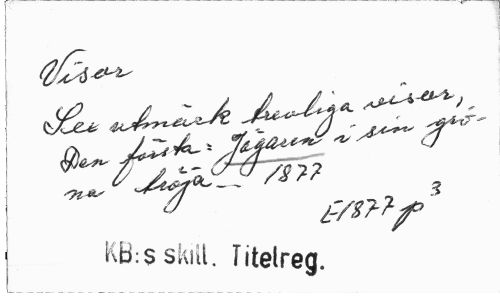 Visor
Sex utmärk trevliga visor,
Den första: Jägaren i sin grö-
na tröja — 1877
E1877 p³
KB:s skill. Titelreg.